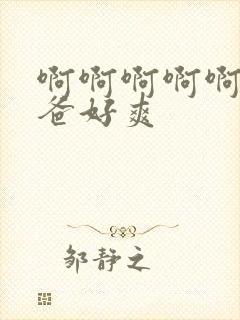 啊啊啊啊啊
爸好爽
邹静之